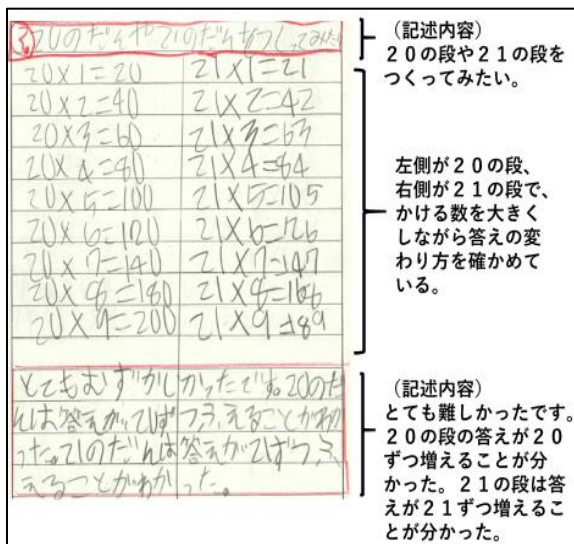 3. 20のだんや21のだんをつくってみたい
20×1=20
20×2=40
20×3=60
20×4=80
20×5=100
20×6=120
20×7=140
20×8=180
20×9=200
21×1=21
21×2=42
21×3=63
21×4=84
21×5=105
21×6=126
21×7=147
21×8=168
21×9=189
とてもむずかしかったです。20のだ
んは答えが20ずつふえることがわか
った。21のだんは答えが21ずつふ
えることがわかった。
（記述内容）
２０の段や２１の段を
つくってみたい。
左側が２０の段、
右側が２１の段で、
かける数を大きく
しながら答えの変
わり方を確かめて
いる。
（記述内容）
とても難しかったです。
２０の段の答えが２０
ずつ増えることが分
かった。２１の段は答
えが２１ずつ増えるこ
とが分かった。